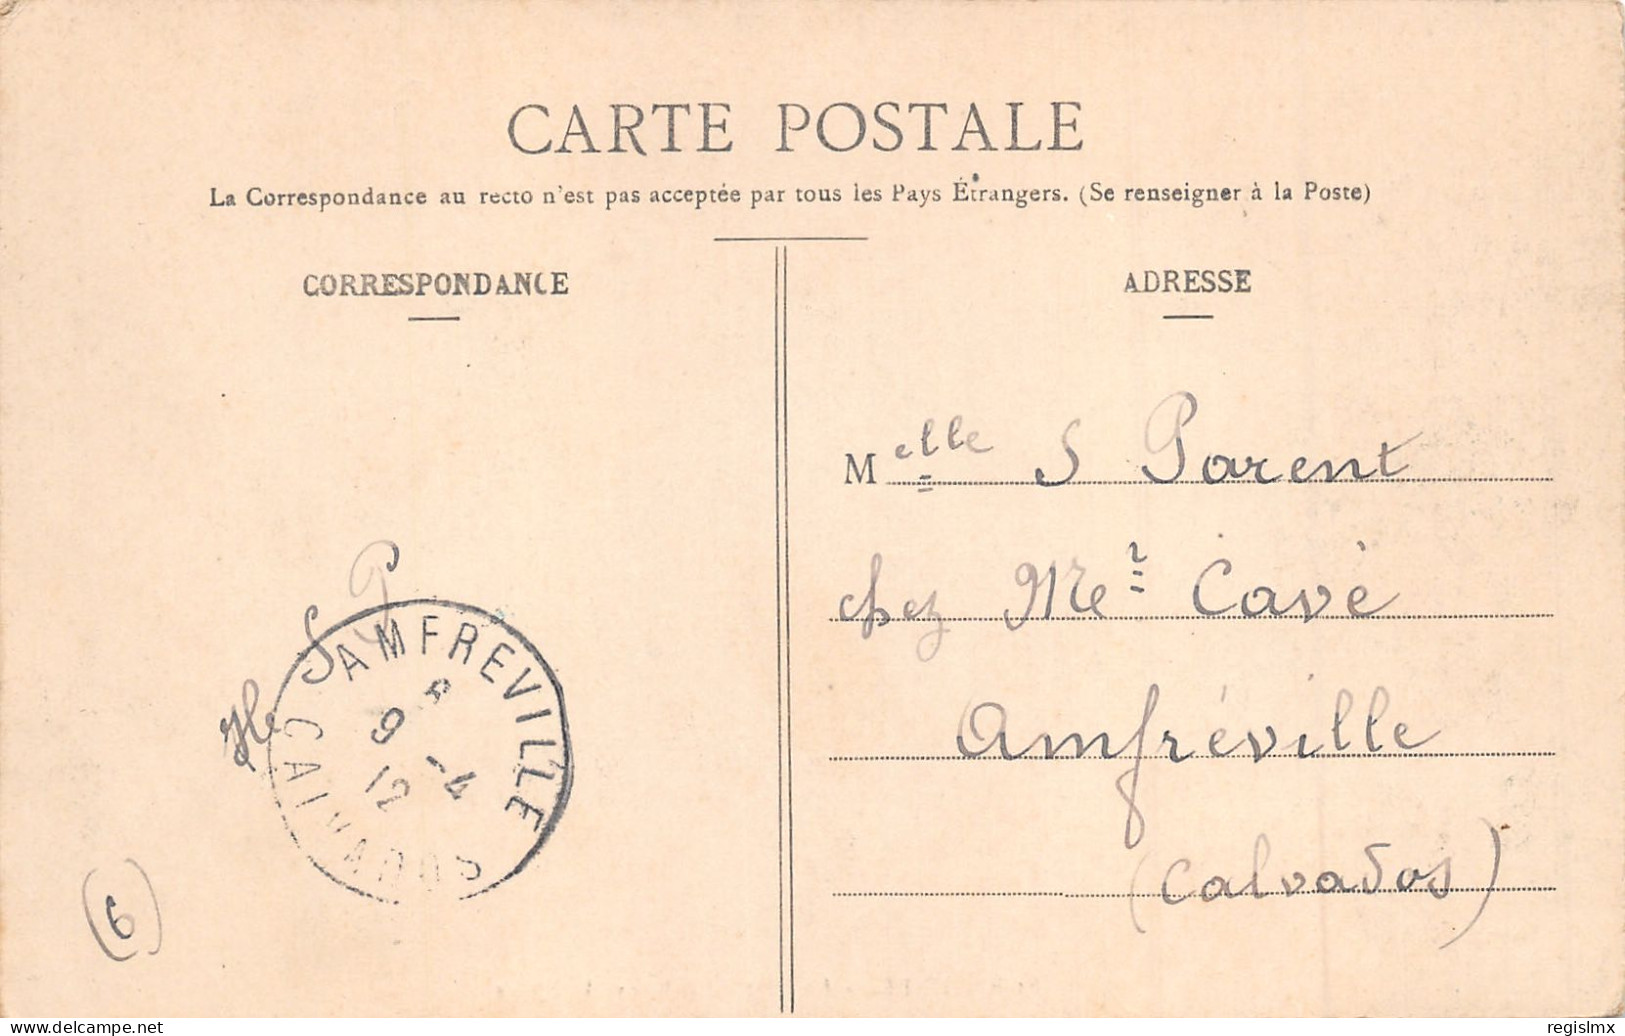 CARTE POSTALE
La Correspondance au recto n'est pas acceptée par tous les Pays Étrangers. (Se renseigner à la Poste)
CORRESPONDANCE
ADRESSE
Melle S Parent
chez Mer Cavé
Amfréville
(Calvados)
S P
AMFREVILLE
9 -4
12
CALVADOS
(6)
www.delcampe.net
regislmx